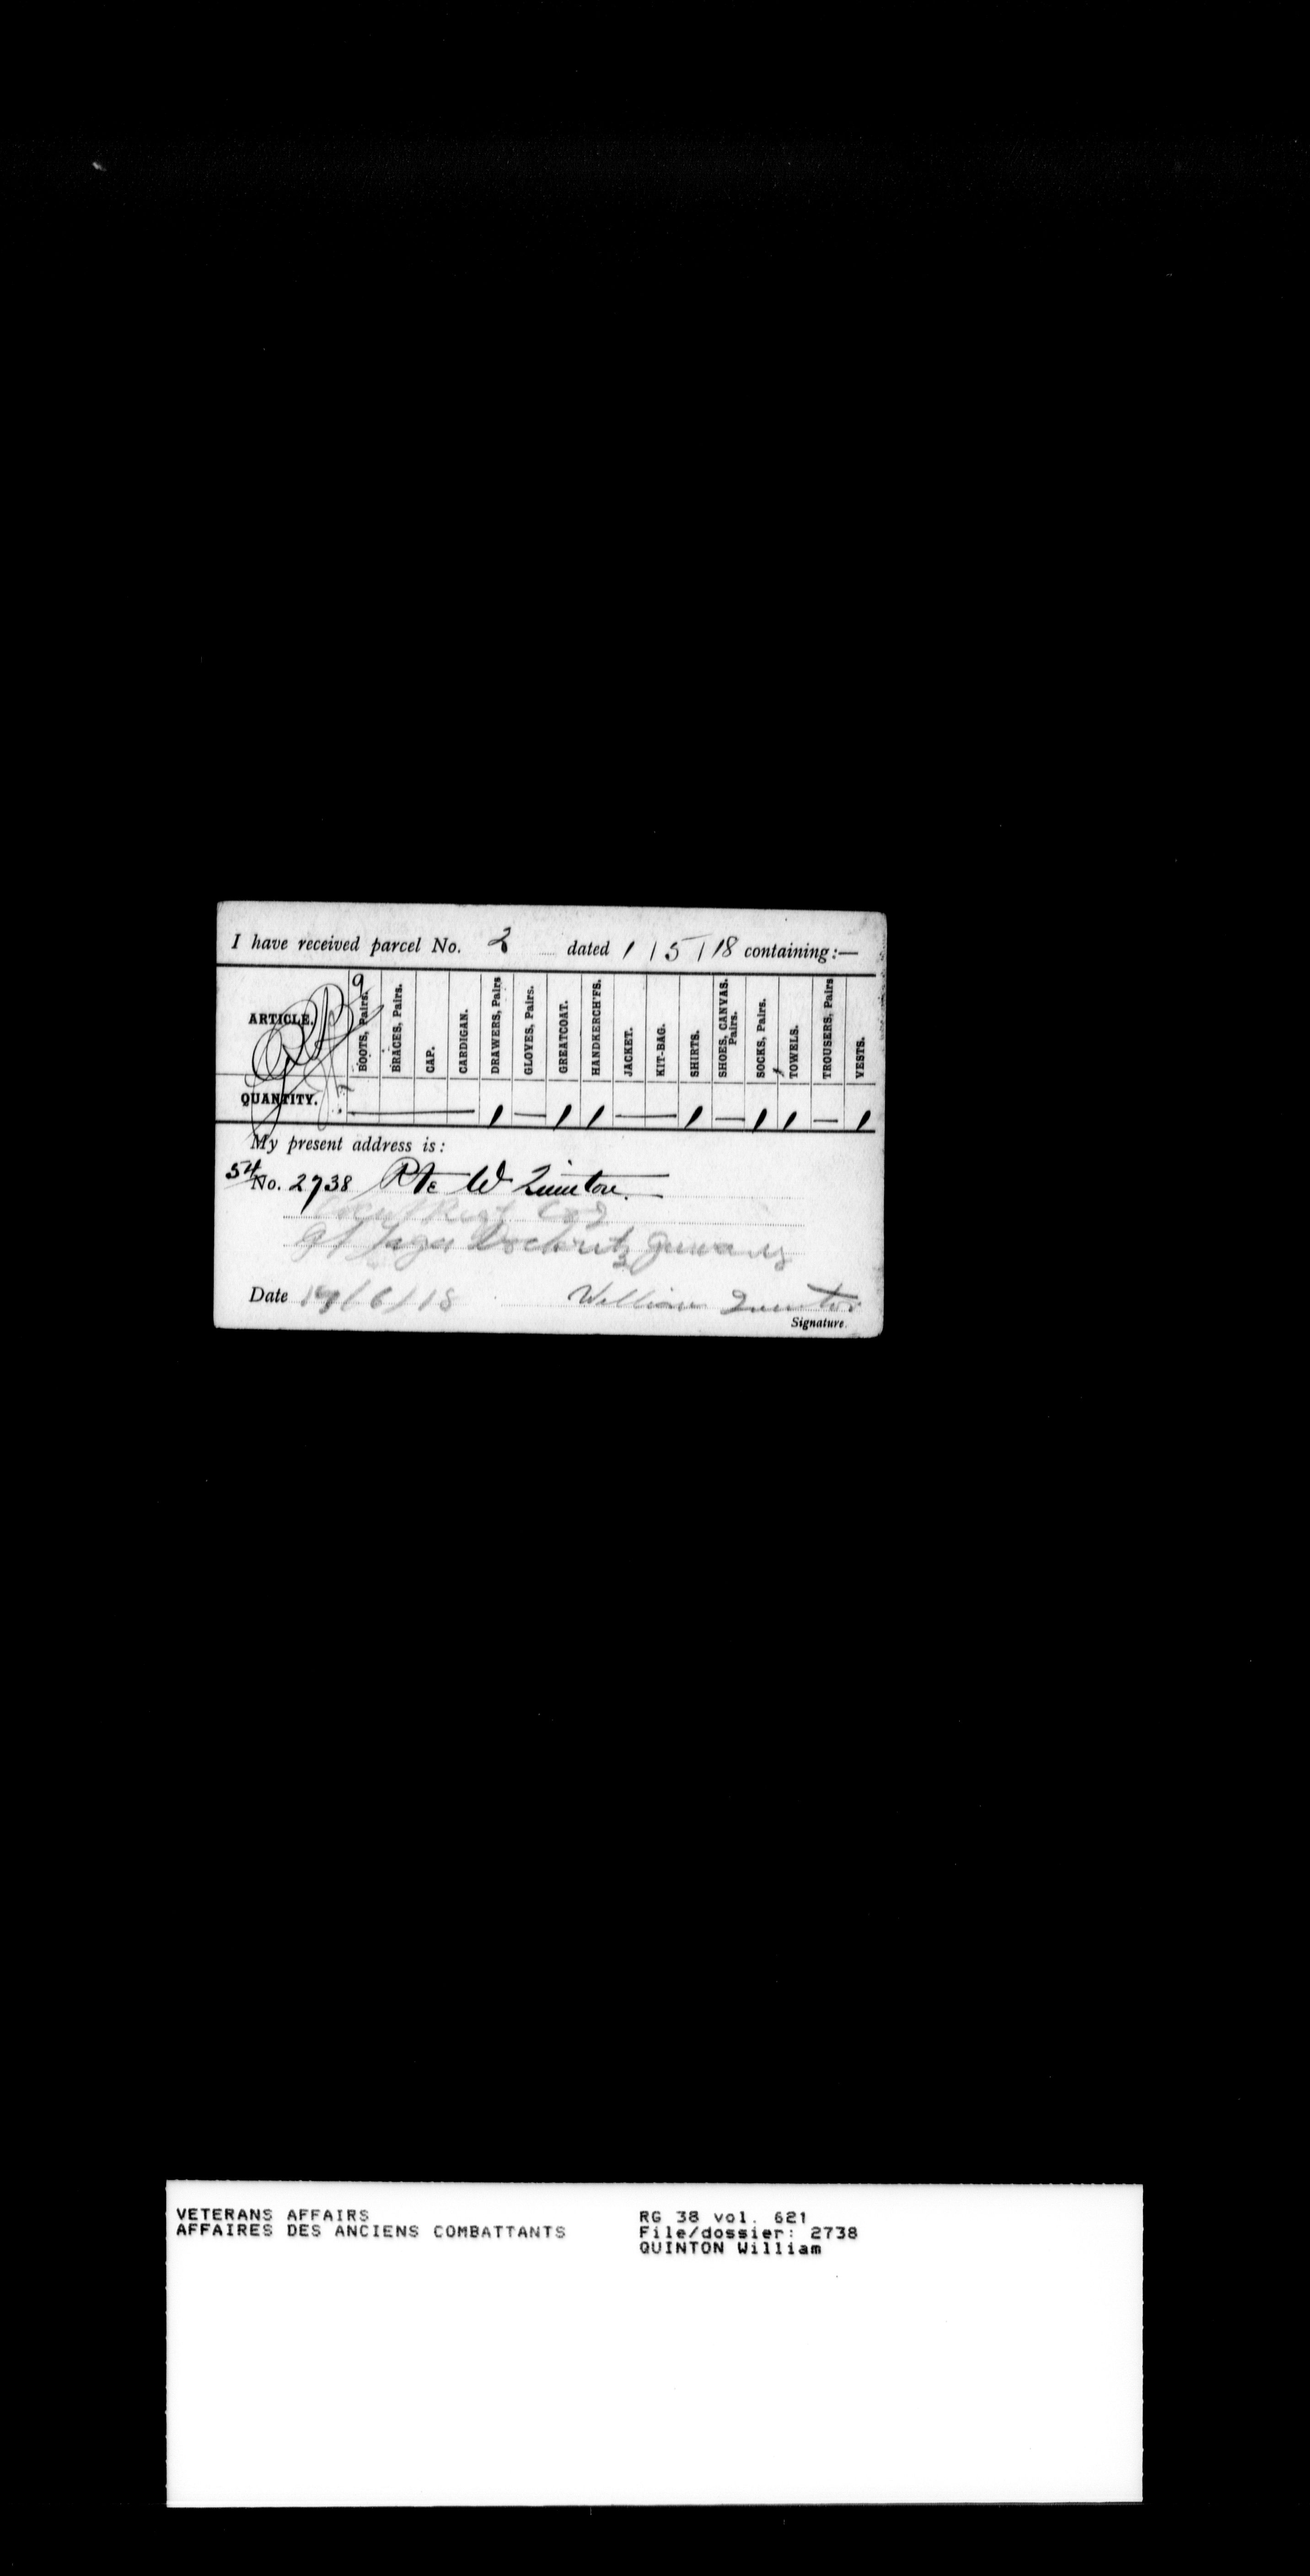 I have received parcel No. 2 dated 1 / 5 / 18 containing:—
ARTICLE. BOOTS, Pairs. BRACES, Pairs. CAP. CARDIGAN. DRAWERS, Pairs GLOVES, Pairs. GREATCOAT. HANDKERCH'FS. JACKET. KIT-BAG. SHIRTS. SHOES, CANVAS. Pairs. SOCKS, Pairs. TOWELS. TROUSERS, Pairs VESTS.
QUANTITY. — 1 — 1 1 — 1 — 1 1 — 1
My present address is:
54
No. 2738 Pte W Quinton
Döberitz Germany
Date /6/18 William Quinton
Signature.
VETERANS AFFAIRS
AFFAIRES DES ANCIENS COMBATTANTS
RG 38 vol. 621
File/dossier: 2738
QUINTON William